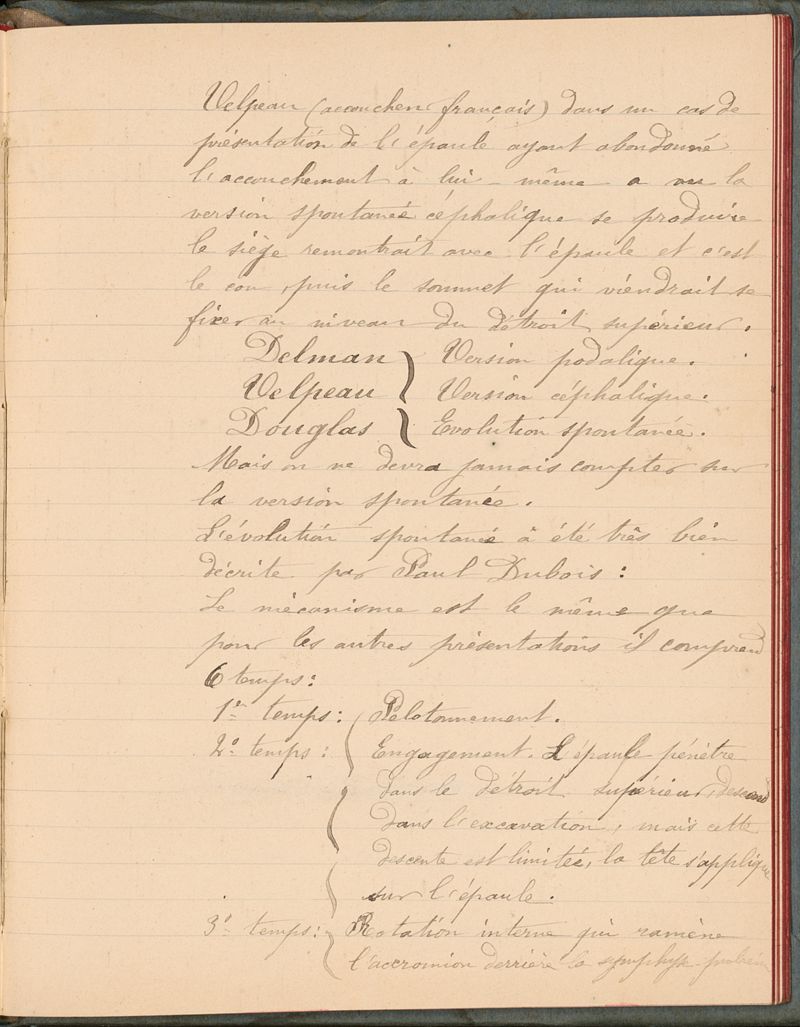 Velpeau (accoucheur français) dans un cas de
présentation de l'épaule ayant abondonné
l'accouchement à lui-même a vu la
version spontanée céphalique se produire
le siège remontrait avec l'épaule et c'est
le cou, puis le sommet qui viendrait se
fixer au niveau du détroit supérieur.
Delman } Version podalique.
Velpeau } Version céphalique.
Douglas } Evolution spontanée.
Mais on ne devra jamais compter sur
la version spontanée.
L'évolution spontanée à été très bien
décrite par Paul Dubois :
Le mécanisme est le même que
pour les autres présentations il comprend
6 temps :
1er temps : Pelotonnement.
2o temps : Engagement. L'épaule pénètre
dans le détroit supérieur, descend
dans l'excavation, mais cette
descente est limitée, la tête s'applique
sur l'épaule.
3o temps : Rotation interne qui ramène
l'accromion derrière la symphyse pubienne